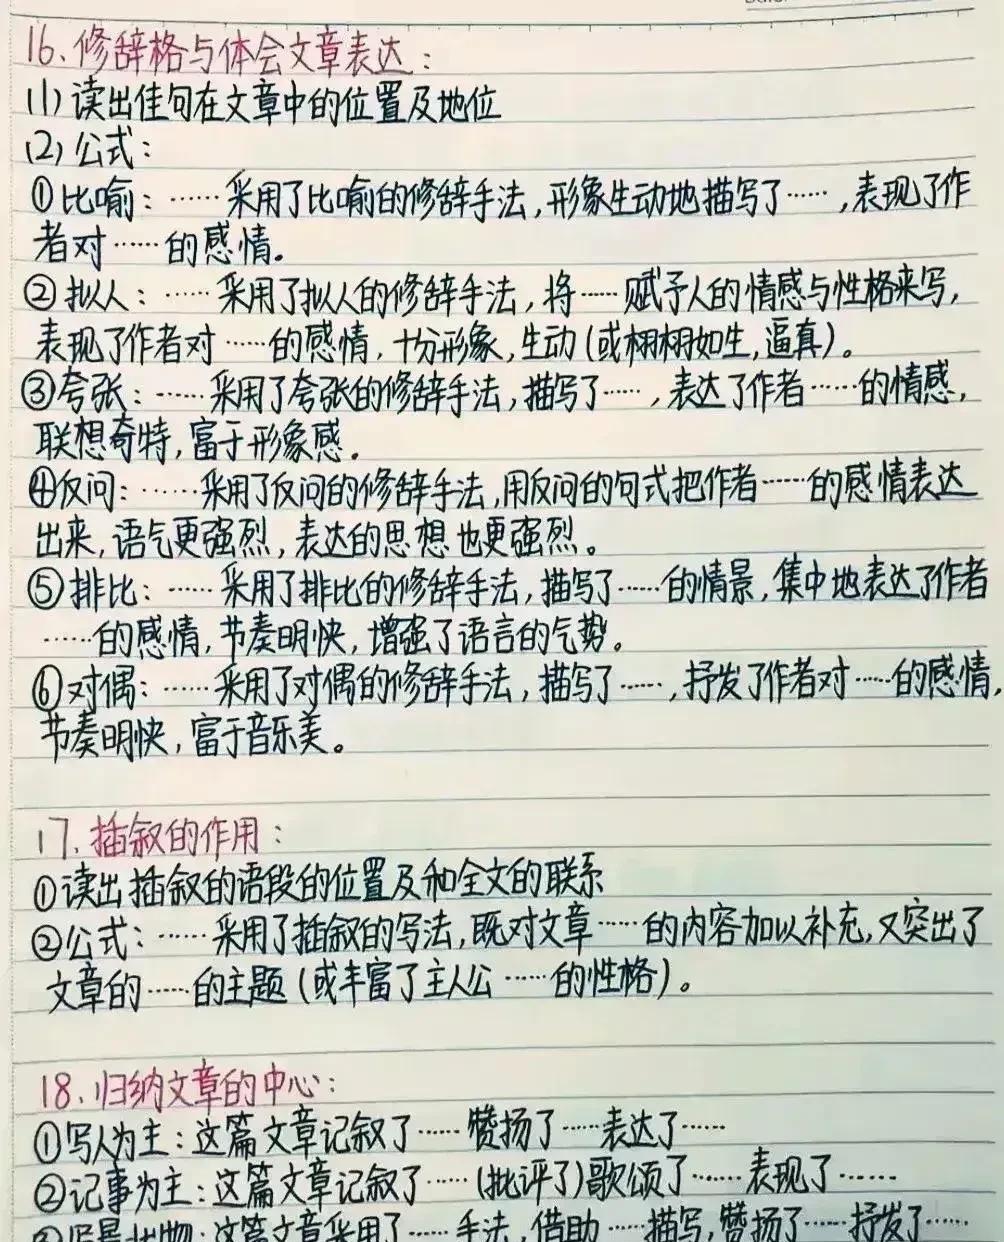 16、修辞格与体会文章表达：
(1) 读出佳句在文章中的位置及地位
(2) 公式：
①比喻：……采用了比喻的修辞手法，形象生动地描写了……，表现了作
者对……的感情。
②拟人：……采用了拟人的修辞手法，将……赋予人的情感与性格来写，
表现了作者对……的感情，十分形象，生动（或栩栩如生，逼真）。
③夸张：……采用了夸张的修辞手法，描写了……，表达了作者……的情感，
联想奇特，富于形象感。
④反问：……采用了反问的修辞手法，用反问的句式把作者……的感情表达
出来，语气更强烈，表达的思想也更强烈。
⑤排比：……采用了排比的修辞手法，描写了……的情景，集中地表达了作者
……的感情，节奏明快，增强了语言的气势。
⑥对偶：……采用了对偶的修辞手法，描写了……，抒发了作者对……的感情，
节奏明快，富于音乐美。
17、插叙的作用：
①读出插叙的语段的位置及和全文的联系
②公式：……采用了插叙的写法，既对文章……的内容加以补充，又突出了
文章的……的主题（或丰富了主人公……的性格）。
18、归纳文章的中心：
①写人为主：这篇文章记叙了……赞扬了……表达了……
②记事为主：这篇文章记叙了……（批评了）歌颂了……表现了……
这篇文章采用了……手法，借助……描写，赞扬了……抒发了……